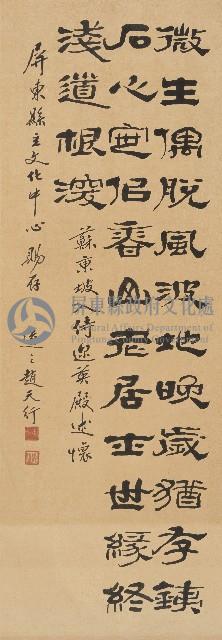 微生偶脫風波地晚歲猶存鐵
石心定侶香山老居士世緣終
淺道根深
蘇東坡倚迩英殿述懷
屏東縣立文化中心賜存
趙天行
屏東縣政府文化處
Cultural Affairs Department of